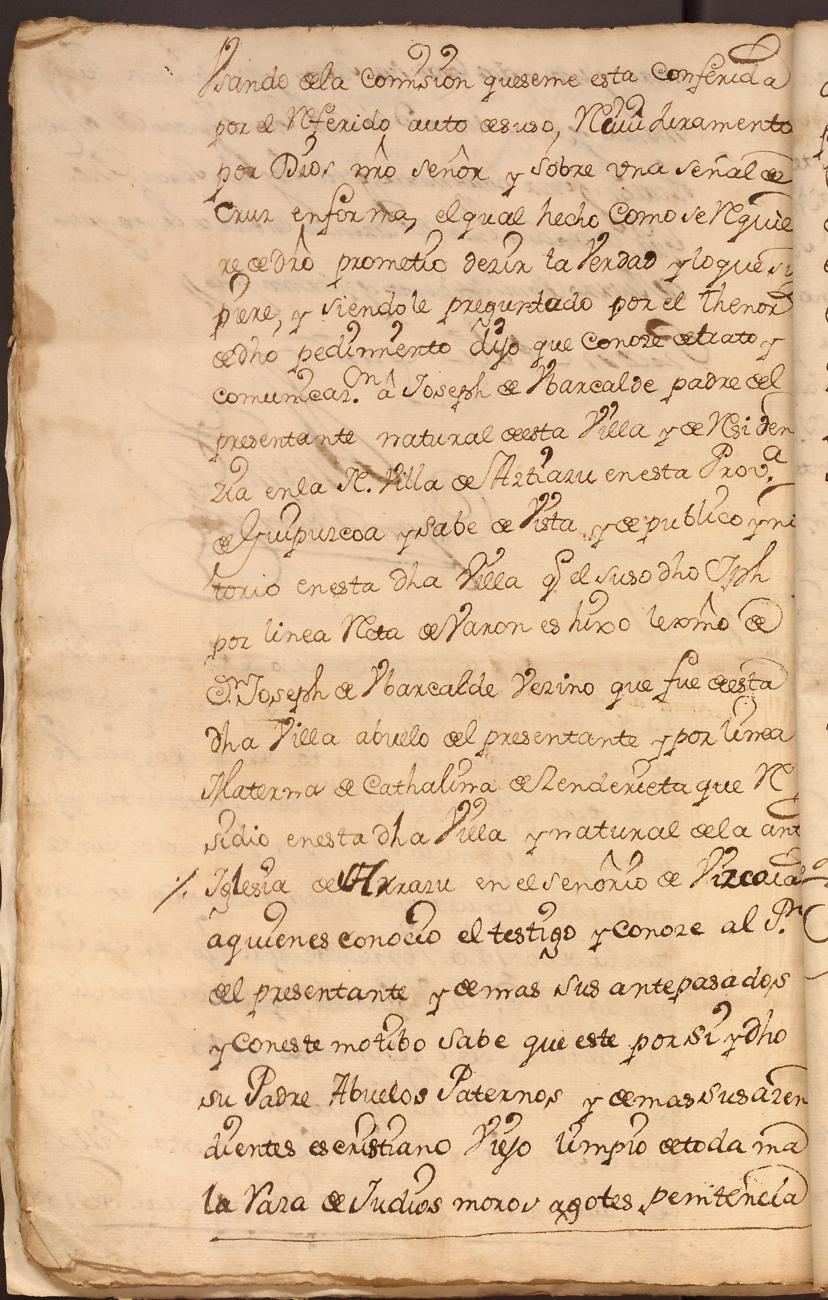 Usando de la Comision que se me esta Conferida
por el Referido auto de suso, Reciui Juramento
por Dios nrô señor y sobre vna señal de
Cruz en forma, el qual hecho Como se Requie
re de drô prometio dezir la Verdad y lo que su
piere, y siendole preguntado por el thenor
de dhô pedimiento dijo que conoze de trato y
comunicaz.on â Joseph de Ybarcalde padre del
presentante natural de esta Villa y de Residen
zia en la N. Villa de Astiazu en esta Prov.a
de Guipuzcoa y sabe de Vista y de publico y no
torio en esta dha Villa q el suso dho Jph
por linea Recta de Varon es hixo lexmô de
Joseph de Ybarcalde Vezino que fue de esta
dha Villa abuelo del presentante y por linea
Materna de Cathalina de Rendericeta que Re
sidio en esta dha Villa y natural de la ante
Iglesia de Arrazu en el Señorio de Vizcaia
a quienes conocio el testigo y conoze al P.e
del presentante y demas sus antepasados
y con este motibo sabe que este por si y dho
su Padre Abuelos Paternos y demas sus azen
dientes es cristiano Viejo limpio de toda ma
la Raza de Judios moros agotes, penitencia